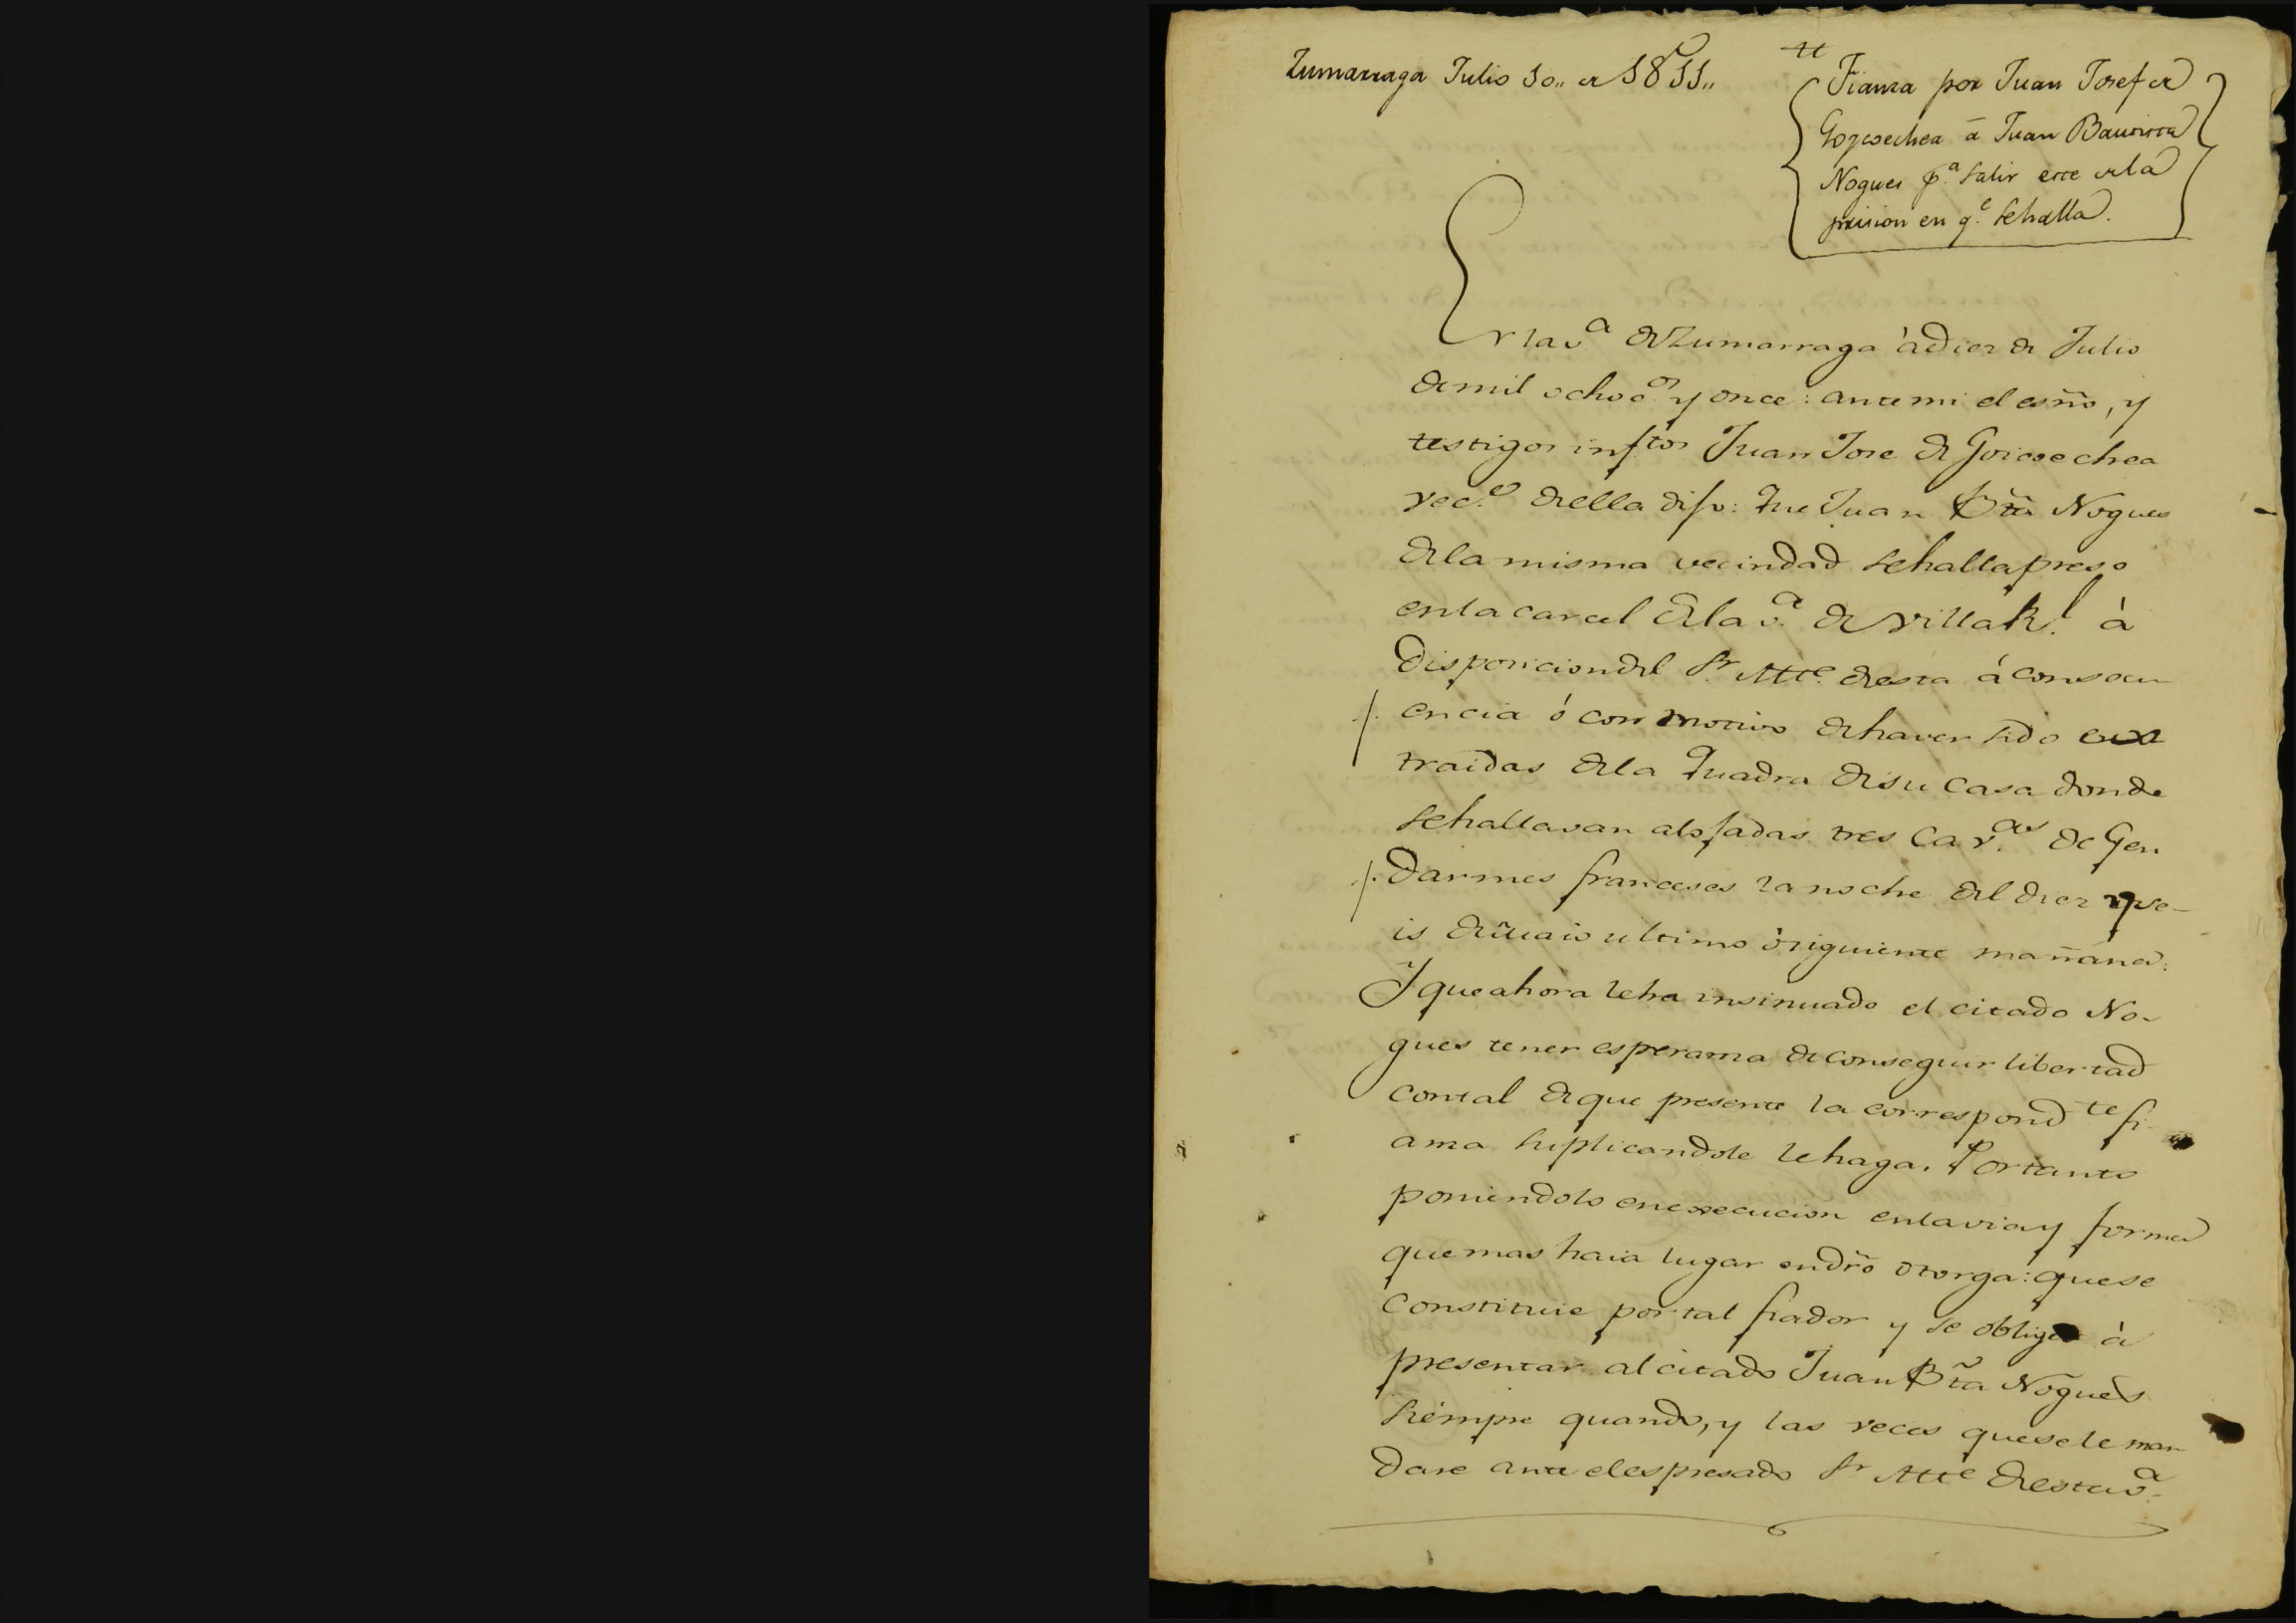 Zumarraga Julio 10,, de 1811,,
Fianza por Juan Josef de
Goycoechea á Juan Bautista
Nogues p.ª salir este dela
prision en q.e sehalla.
En la v.ª de Zumarraga à diez de Julio
de mil ochoc.os y once: ante mi el esño, y
testigos infros Juan Jose de Goicoechea
vec.o de ella dijo: Que Juan Bta Nogues
de la misma vecindad sehalla preso
enla carcel de la v.ª de Villa R.l à
disposicion del Sr. Alce. de esta á consecu
encia ó con motivo de haver sido ex
traidas dela Quadra desu casa donde
sehallavan alojadas tres cav.as de Gen
darmes franceses la noche del diez y se-
is de Maio ultimo ó siguiente mañana:
Y que ahora leha insinuado el citado No-
gues tener esperanza de conseguir libertad
contal deque presente la correspond te fi-
anza suplicandole lehaga. Portanto
poniendolo enexecucion enlavia y forma
quemas haia lugar endrõ otorga: quese
constituie portal fiador y se obliga à
presentar alcitado Juan Bta Nogues
siempre quando, y las veces quesele man
dare ante elespresado Sr Alce de esta v.ª